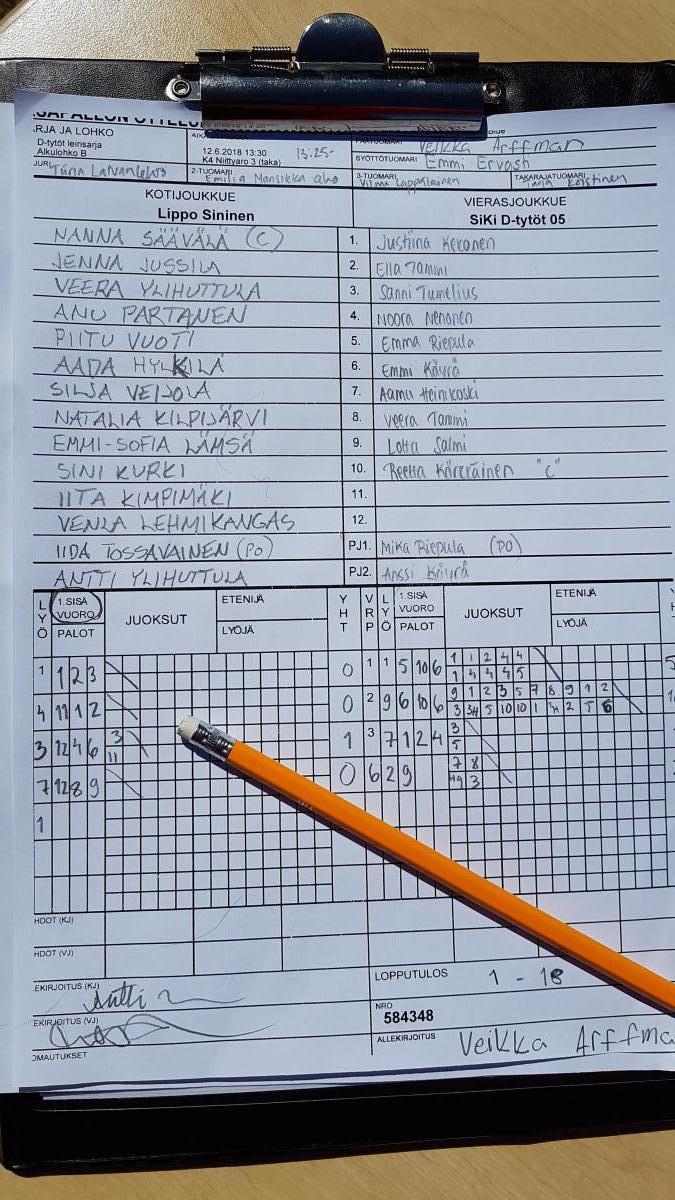 ARJA JA LOHKO
D-tytöt leirisarja
Alkulohko B
12.6.2018 13:30
K4 Niittyaro 3 (taka)
13:25-
Veikka Arffman
SYÖTTÖTUOMARI Emmi Ervasti
2-TUOMARI
3-TUOMARI
TAKARAJATUOMARI
KOTIJOUKKUE
Lippo Sininen
VIERASJOUKKUE
SiKi D-tytöt 05
NANNA SÄÄVÄLÄ (C) 1. Justiina Kekonen
JENNA JUSSILA 2. Ella Tammi
VEERA YLIHUTTULA 3. Sanni Tumelius
ANU PARTANEN 4. Noora Nenonen
PIITU VUOTI 5. Emma Riepula
AADA HYLKILÄ 6. Emmi Käyrä
SILJA VEIJOLA 7. Aamu Heinikoski
NATALIA KILPIJÄRVI 8. Veera Tammi
EMMI-SOFIA LÄMSÄ 9. Lotta Salmi
SINI KURKI 10. Reetta Kärräinen "C"
IITA KIMPIMÄKI 11.
VENLA LEHMIKANGAS 12.
IIDA TOSSAVAINEN (PO) PJ1. Mika Riepula (PO)
ANTTI YLIHUTTULA PJ2. Anssi Käyrä
LYÖ 1.SISÄ VUORO PALOT JUOKSUT ETENIJÄ LYÖJÄ YHT VRP LYÖ 1.SISÄ VUORO PALOT JUOKSUT ETENIJÄ LYÖJÄ
1 1 2 3 0 1 1 5 10 6 1 1 2 4 4
1 4 4 4 5
4 11 1 2 0 2 9 6 10 6 9 1 2 3 5 7 8 9 1 2
3 12 4 6 3 1 3 7 1 2 4 3
11 5
7 12 8 9 0 6 2 9 7 8
1
HDOT (KJ)
HDOT (VJ)
EKIRJOITUS (KJ) Antti
LOPPUTULOS 1 - 18
EKIRJOITUS (VJ)
NRO
584348
ALLEKIRJOITUS Veikka Arffma
OMAUTUKSET